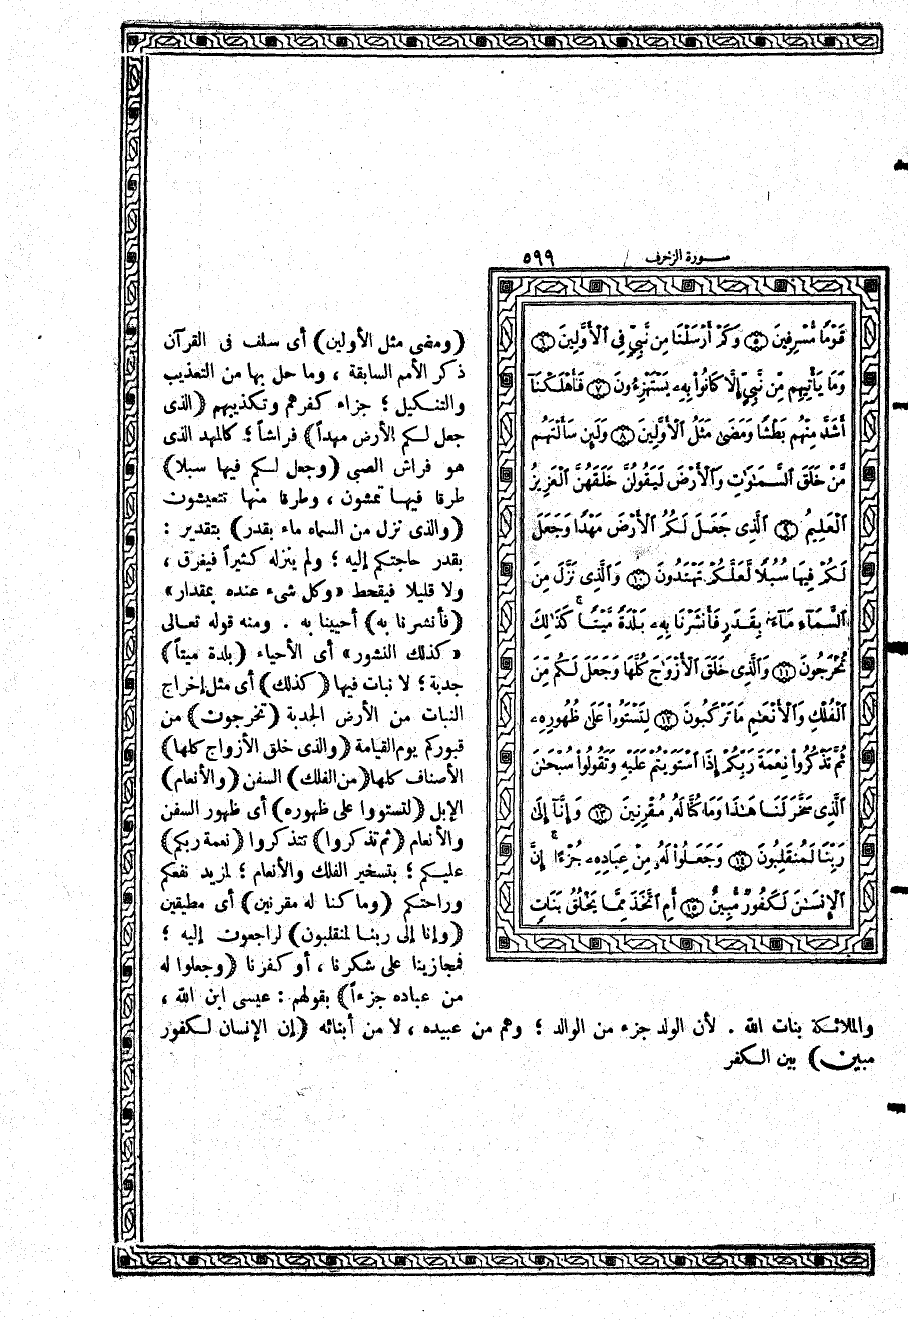 سورة الزخرف ٥٩٩
قَوْمًا مُّسْرِفِينَ ٥ وَكَمْ أَرْسَلْنَا مِن نَّبِيٍّ فِي ٱلْأَوَّلِينَ ٦
وَمَا يَأْتِيهِم مِّن نَّبِيٍّ إِلَّا كَانُوا۟ بِهِۦ يَسْتَهْزِءُونَ ٧ فَأَهْلَكْنَآ
أَشَدَّ مِنْهُم بَطْشًا وَمَضَىٰ مَثَلُ ٱلْأَوَّلِينَ ٨ وَلَئِن سَأَلْتَهُم
مَّنْ خَلَقَ ٱلسَّمَٰوَٰتِ وَٱلْأَرْضَ لَيَقُولُنَّ خَلَقَهُنَّ ٱلْعَزِيزُ
ٱلْعَلِيمُ ٩ ٱلَّذِى جَعَلَ لَكُمُ ٱلْأَرْضَ مَهْدًا وَجَعَلَ
لَكُمْ فِيهَا سُبُلًا لَّعَلَّكُمْ تَهْتَدُونَ ١٠ وَٱلَّذِى نَزَّلَ مِنَ
ٱلسَّمَآءِ مَآءًۢ بِقَدَرٍ فَأَنشَرْنَا بِهِۦ بَلْدَةً مَّيْتًا ۚ كَذَٰلِكَ
تُخْرَجُونَ ١١ وَٱلَّذِى خَلَقَ ٱلْأَزْوَٰجَ كُلَّهَا وَجَعَلَ لَكُم مِّنَ
ٱلْفُلْكِ وَٱلْأَنْعَٰمِ مَا تَرْكَبُونَ ١٢ لِتَسْتَوُۥا۟ عَلَىٰ ظُهُورِهِۦ
ثُمَّ تَذْكُرُوا۟ نِعْمَةَ رَبِّكُمْ إِذَا ٱسْتَوَيْتُمْ عَلَيْهِ وَتَقُولُوا۟ سُبْحَٰنَ
ٱلَّذِى سَخَّرَ لَنَا هَٰذَا وَمَا كُنَّا لَهُۥ مُقْرِنِينَ ١٣ وَإِنَّآ إِلَىٰ
رَبِّنَا لَمُنقَلِبُونَ ١٤ وَجَعَلُوا۟ لَهُۥ مِنْ عِبَادِهِۦ جُزْءًا ۚ إِنَّ
ٱلْإِنسَٰنَ لَكَفُورٌ مُّبِينٌ ١٥ أَمِ ٱتَّخَذَ مِمَّا يَخْلُقُ بَنَاتٍ
(ومضى مثل الأولين) أى سلف فى القرآن
ذكر الأمم السابقة ، وما حل بها من التعذيب
والتنكيل ؛ جزاء كفرهم وتكذيبهم (الذى
جعل لكم الأرض مهداً) فراشاً ؛ كالمهد الذى
هو فراش الصبى (وجعل لكم فيها سبلا)
طرقا فيها تمشون ، وطرقا منها تتعيشون
(والذى نزل من السماء ماء بقدر) بتقدير :
بقدر حاجتكم إليه ؛ ولم ينزله كثيراً فيغرق ،
ولا قليلا فيقحط «وكل شىء عنده بمقدار»
(فأنشرنا به) أحيينا به . ومنه قوله تعالى
«كذلك النشور» أى الأحياء (بلدة ميتاً)
جدبة ؛ لا نبات فيها (كذلك) أى مثل إخراج
النبات من الأرض الجدبة (تخرجون) من
قبوركم يوم القيامة (والذى خلق الأزواج كلها)
الأصناف كلها (من الفلك) السفن (والأنعام)
الإبل (لتستووا على ظهوره) أى ظهور السفن
والأنعام (ثم تذكروا) تتذكروا (نعمة ربكم)
عليكم ؛ بتسخير الفلك والأنعام ؛ لمزيد نفعكم
وراحتكم (وما كنا له مقرنين) أى مطيقين
(وإنا إلى ربنا لمنقلبون) لراجعون إليه ؛
فمجازينا على شكرنا ، أو كفرنا (وجعلوا له
من عباده جزءاً) بقولهم : عيسى ابن الله ،
والملائكة بنات الله . لأن الولد جزء من الوالد ؛ وهم من عبيده ، لا من أبنائه (إن الإنسان لكفور
مبين) بين الكفر